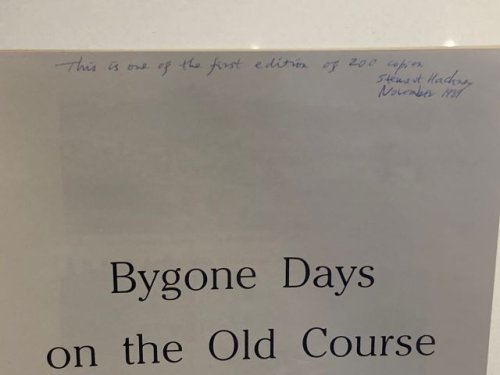 This is one of the first edition of 200 copies
Stewart Hackney
November 1989
Bygone Days
on the Old Course